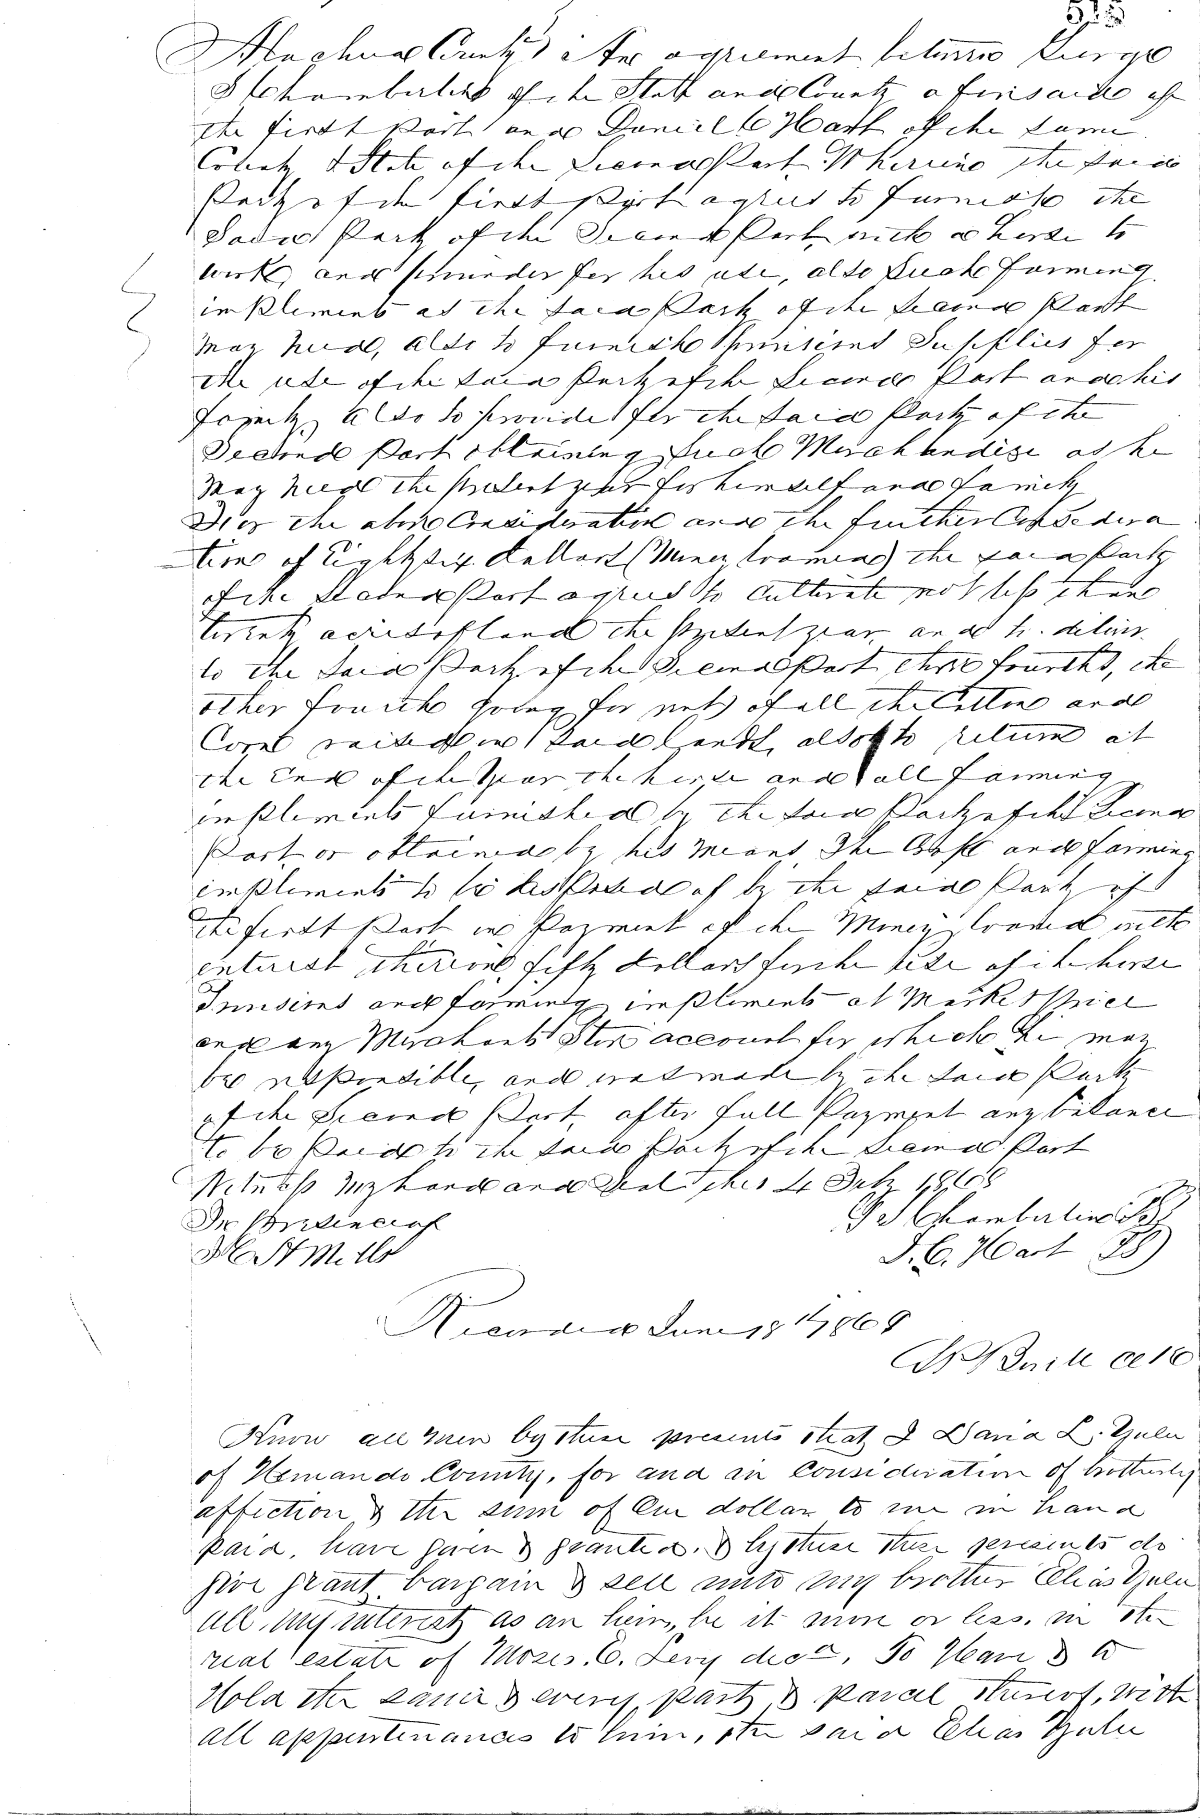 515
Alachua County An agreement between George
S Chamberlin of the State and County aforesaid of
the first Part and Daniel C Hart of the same
County & State of the Second Part. Wherein the said
Party of the first Part agrees to furnish the
Said Party of the Second Part with a horse to
work, and provinder for his use, also Such farming
implements as the Said Party of the Second Part
may need, also to furnish provisions Supplies for
the use of the said Party of the Second Part and his
family, also to provide for the Said Party of the
Second Part obtaining Such Merchandise as he
may need the present year for himself and family
For the above Consideration and the further Considera
tion of Eighty six dollars (Money loaned) the said Party
of the Second Part agrees to cultivate not less than
twenty acres of land the present year, and to deliver
to the Said Party of the Second Part three fourths, the
other fourth going for rent) of all the Cotton and
Corn raised on said lands, also to return at
the End of the Year the horse and all farming
implements furnished by the said Party of the Second
Part or obtained by his means. The Crops and farming
implements to be disposed of by the said Party of
the first Part in Payment of the Money loaned with
interest thereon fifty dollars for the use of the horse
Provisions and farming implements at Market Price
and any Merchants Store account for which he may
be responsible, and was made by the Said Party
of the Second Part, after full Payment any balance
to be Paid to the said Party of the Second Part
Witness my hand and Seal this 4 July 1868
In Presence of G S Chamberlin
H Mills D. C. Hart
Recorded June 18th 1868
Know all men by these presents that I David L. Yulee
of Hernando County, for and in Consideration of brotherly
affection & the sum of One dollar to me in hand
paid, have given & granted, & by these these presents do
give grant bargain & sell unto my brother Elias Yulee
all my interest as an heir, be it more or less, in the
real estate of Moses. E. Levy decd. To Have & to
Hold the same & every part & parcel thereof, with
all appurtenances to him, the said Elias Yulee